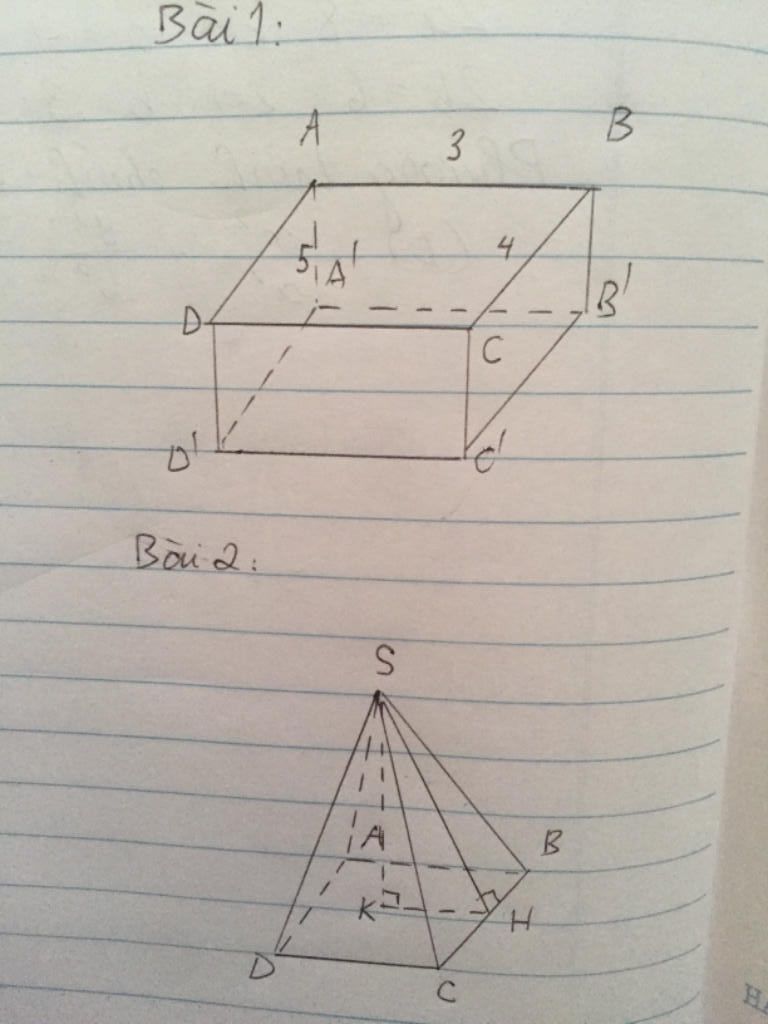 Bài 1:
A
3
B
5
A'
4
D
B'
C
D'
C'
Bài 2:
S
A
B
K
H
D
C